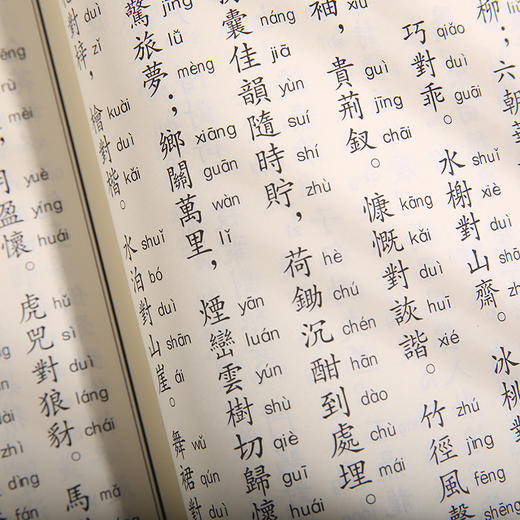 柳 liǔ；六朝
巧 qiǎo 對 duì 乖 guāi。水 shuǐ 榭 xiè 對 duì 山 shān 齋 zhāi。冰桃對
袖 xiù，貴 guì 荊 jīng 釵 chāi。慷 kāng 慨 kǎi 對 duì 詼 huī 諧 xié。竹 zhú 徑 jìng 風 fēng 聲 shēng
囊 náng 佳 jiā 韻 yùn 隨 suí 時 shí 貯 zhù，荷 hè 鋤 chú 沉 chén 酣 hān 到 dào 處 chù 埋 mái。
驚 jīng 旅 lǚ 夢 mèng；鄉 xiāng 關 guān 萬 wàn 里 lǐ，煙 yān 巒 luán 雲 yún 樹 shù 切 qiè 歸 guī 懷 huái
對 duì 梓 zǐ，檜 kuài 對 duì 楷 kǎi。水 shuǐ 泊 bó 對 duì 山 shān 崖 ái。舞 wǔ 裙 qún 對 duì
月 yuè 盈 yíng 懷 huái。虎 hǔ 兕 sì 對 duì 狼 láng 豺 chái。馬 mǎ